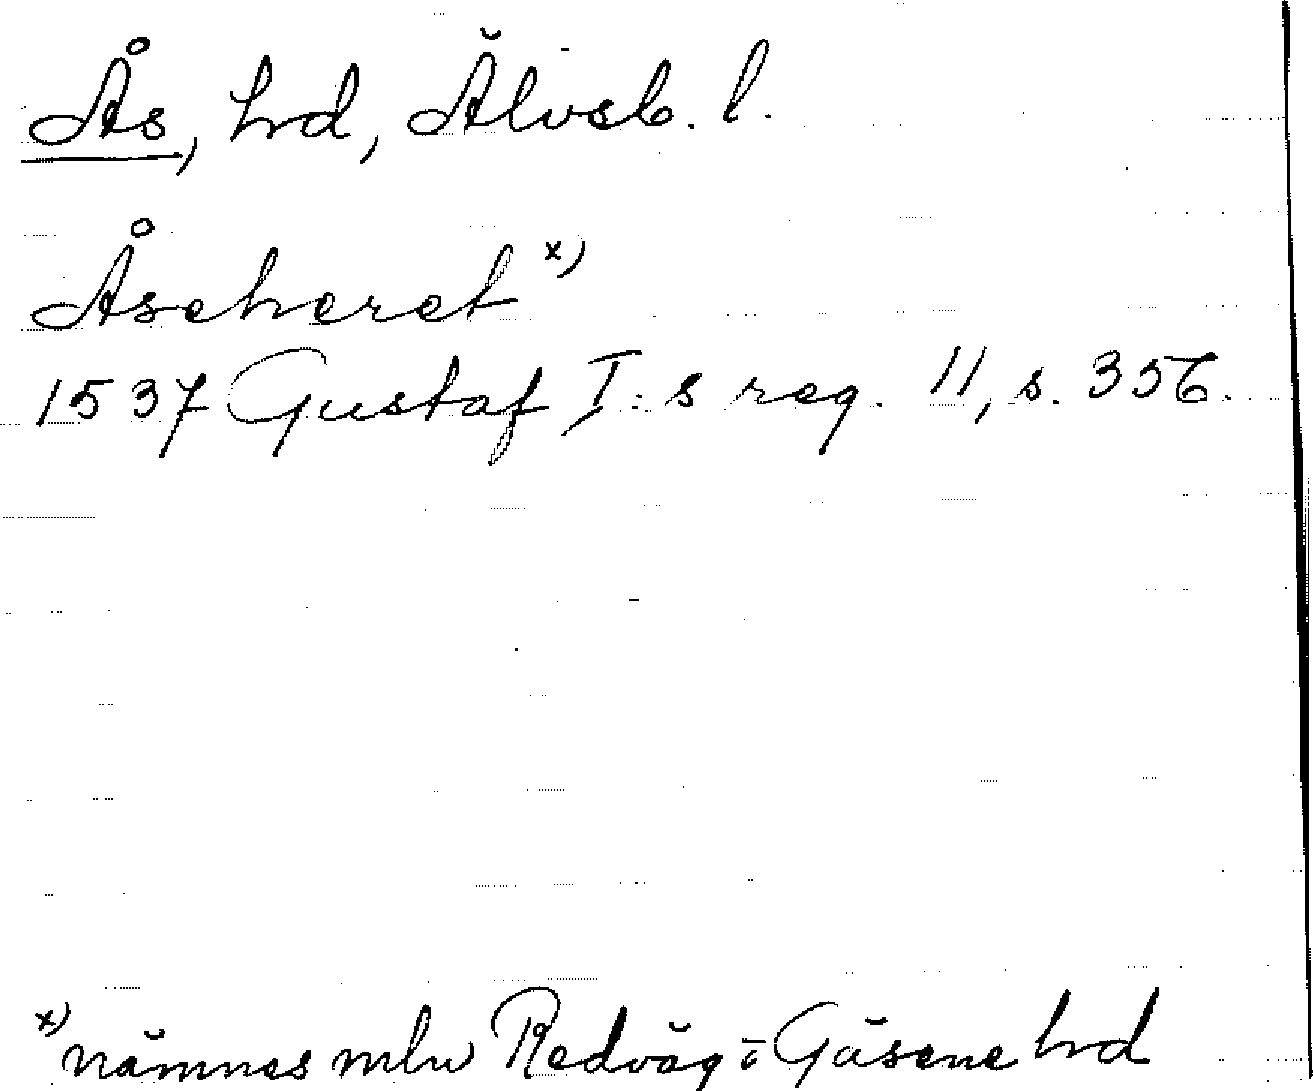 Ås, hrd, Älvsb. l.
Åseheret x)
1537 Gustaf I:s reg. 11, s. 356.
x) nämnes mln Redväg o Gäsene hrd